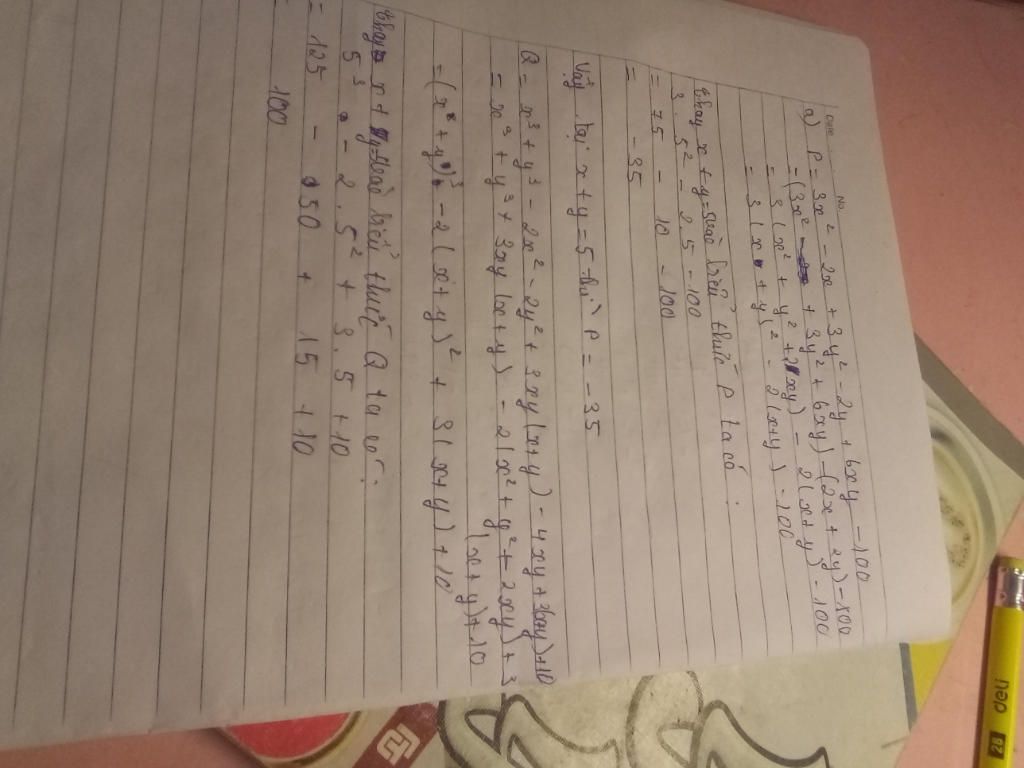 Date. No.
a) P = 3x² - 2x + 3y² - 2y + 6xy - 100
= (3x² + 3y² + 6xy) - (2x + 2y) - 100
= 3(x² + y² + 2xy) - 2(x+y) - 100
= 3(x + y)² - 2(x+y) - 100
Thay x + y = 5 vào biểu thức P ta có:
3. 5² - 2.5 - 100
= 75 - 10 - 100
= -35
Vậy tại x + y = 5 thì P = -35
Q = x³ + y³ - 2x² - 2y² + 3xy(x+y) - 4xy + 3(x+y) + 10
= x³ + y³ + 3xy(x+y) - 2(x² + y² + 2xy) + 3
(x+y) + 10
= (x + y)³ - 2(x+y)² + 3(x+y) + 10
Thay x + y = 5 vào biểu thức Q ta có:
5³ - 2. 5² + 3.5 + 10
= 125 - 50 + 15 + 10
= 100
deli
2B